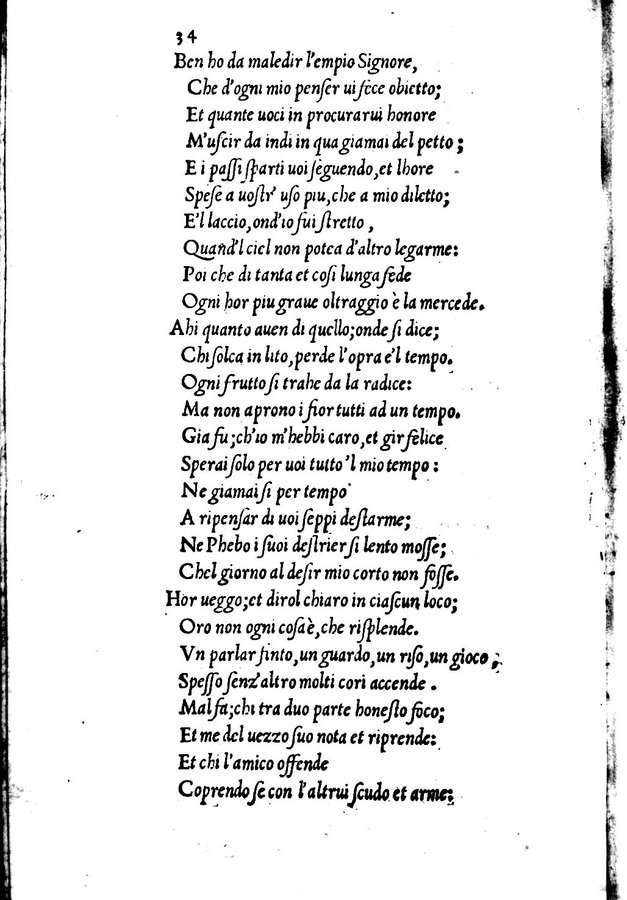 34
Ben ho da maledir l'empio Signore,
Che d'ogni mio penſer ui fece obietto;
Et quante uoci in procurarui honore
M'uſcir da indi in qua giamai del petto;
E i paſſi ſparti uoi ſeguendo, et lhore
Speſe a uoſtr' uſo piu, che a mio diletto;
E'l laccio, ond'io fui ſtretto,
Quand'l ciel non potea d'altro legarme:
Poi che di tanta et coſi lunga fede
Ogni hor piu graue oltraggio è la mercede.
Ahi quanto auen di quello; onde ſi dice;
Chi ſolca in lito, perde l'opra e'l tempo.
Ogni frutto ſi trahe da la radice:
Ma non aprono i fior tutti ad un tempo.
Gia fu; ch'io m'hebbi caro, et gir felice
Sperai ſolo per uoi tutto 'l mio tempo:
Ne giamai ſi per tempo
A ripenſar di uoi ſeppi deſtarme;
Ne Phebo i ſuoi deſtrier ſi lento moſſe;
Chel giorno al deſir mio corto non foſſe.
Hor ueggo; et dirol chiaro in ciaſcun loco;
Oro non ogni coſa è, che riſplende.
Vn parlar finto, un guardo, un riſo, un gioco,
Speſſo ſenz'altro molti cori accende.
Mal fa; chi tra duo parte honeſto foco;
Et me del uezzo ſuo nota et riprende:
Et chi l'amico offende
Coprendo ſe con l'altrui ſcudo et arme: